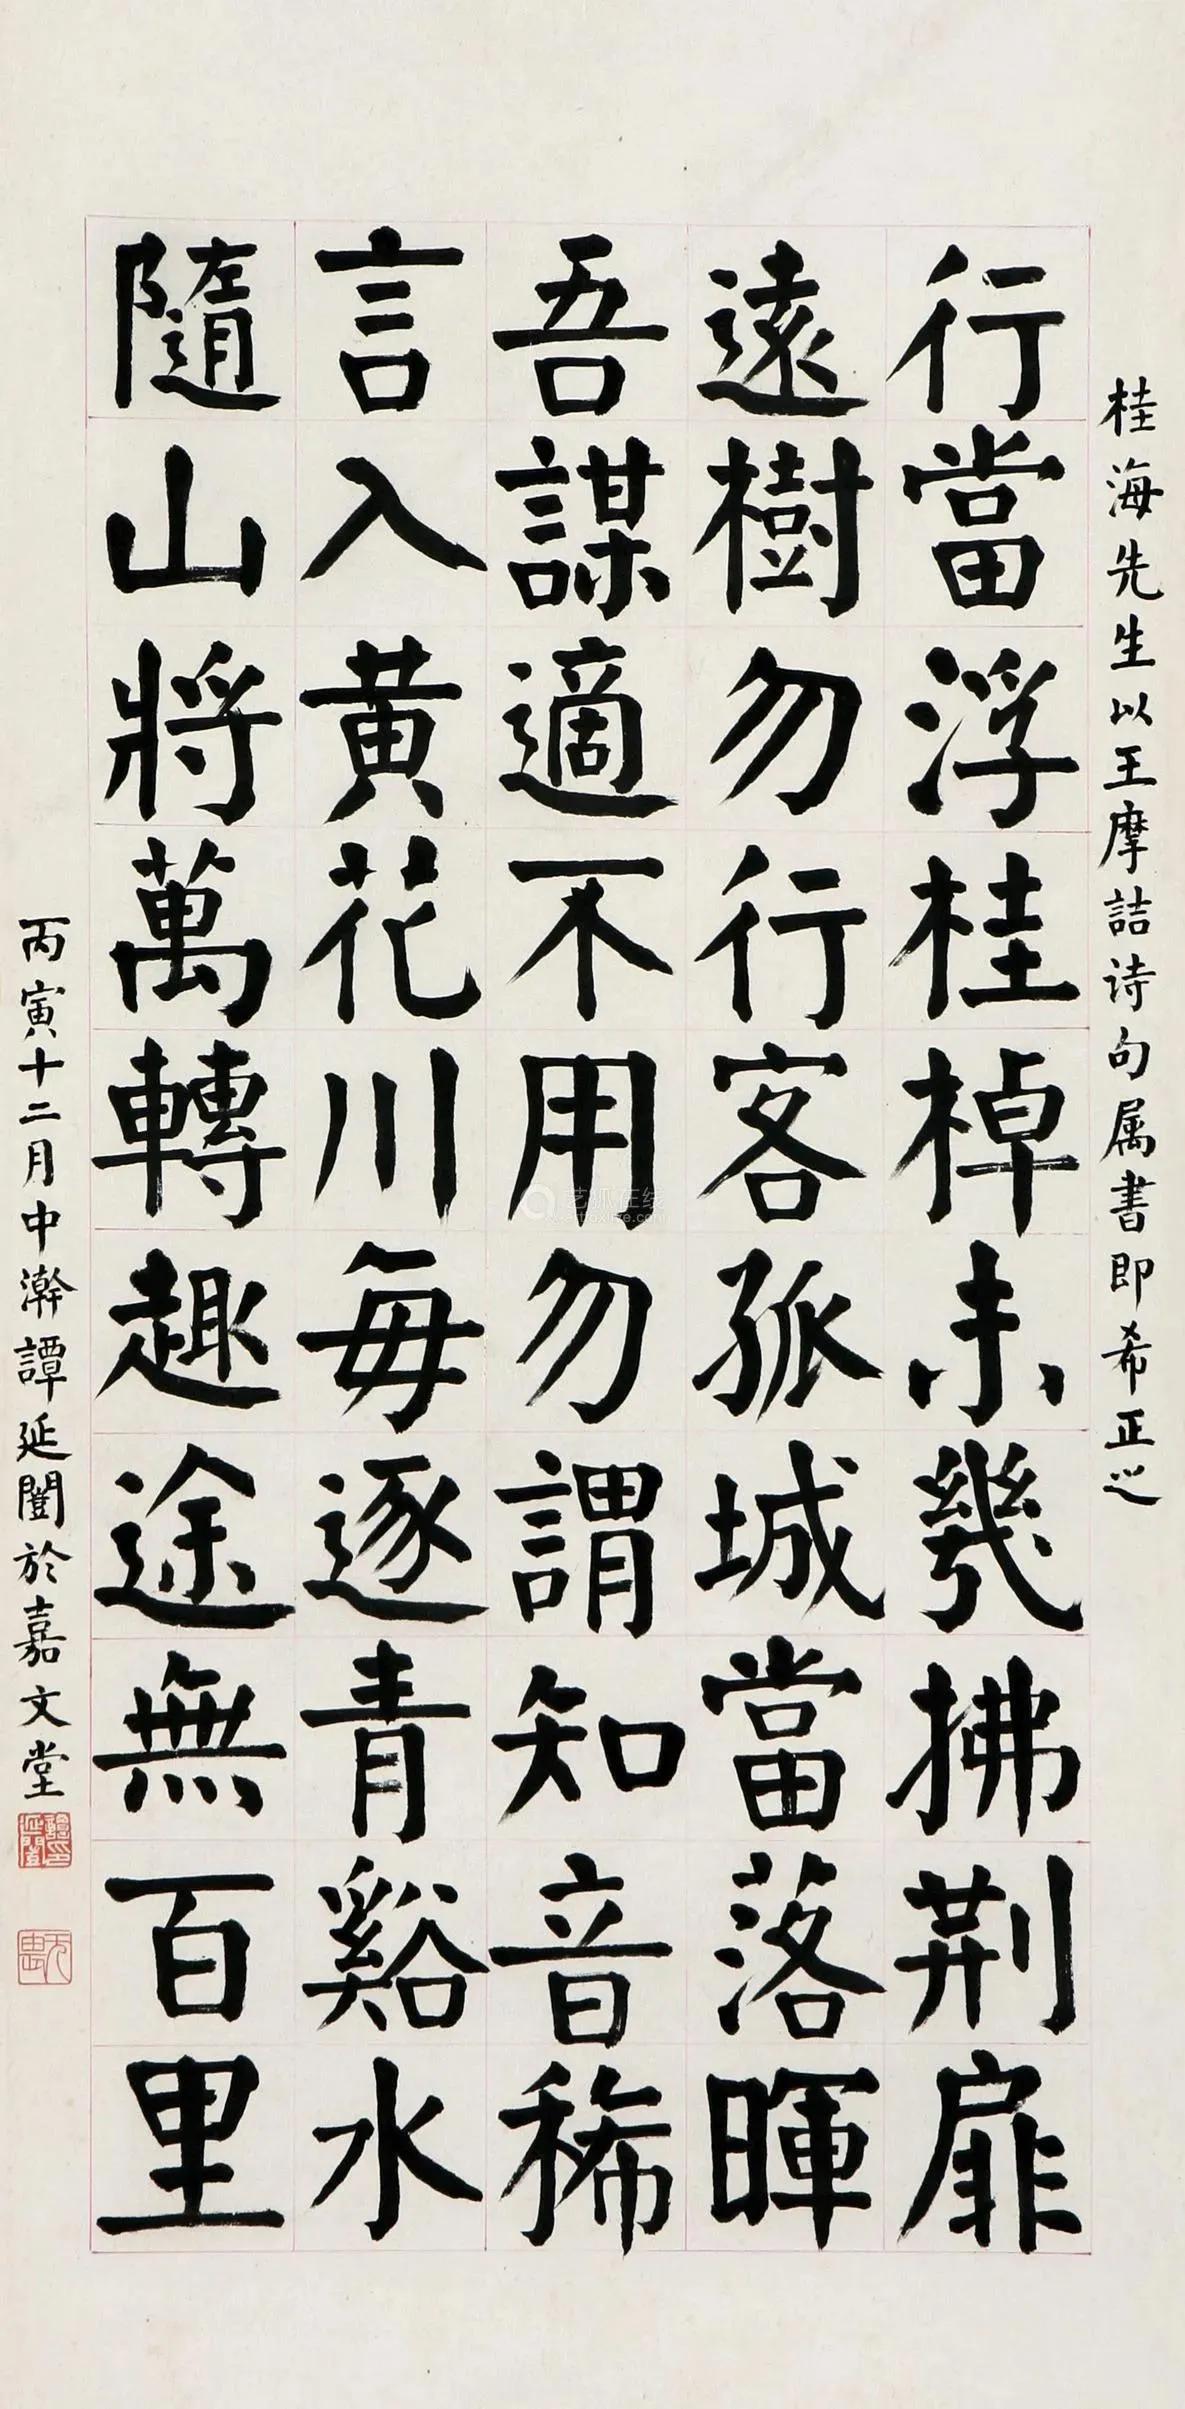 桂海先生以王摩詰诗句属書即希正之
行當浮桂棹未幾拂荆扉
遠樹勿行客孤城當落暉
吾謀適不用勿謂知音稀
言入黄花川每逐青谿水
隨山將萬轉趣途無百里
丙寅十二月中澣譚延闓於嘉文堂
譚延闓印